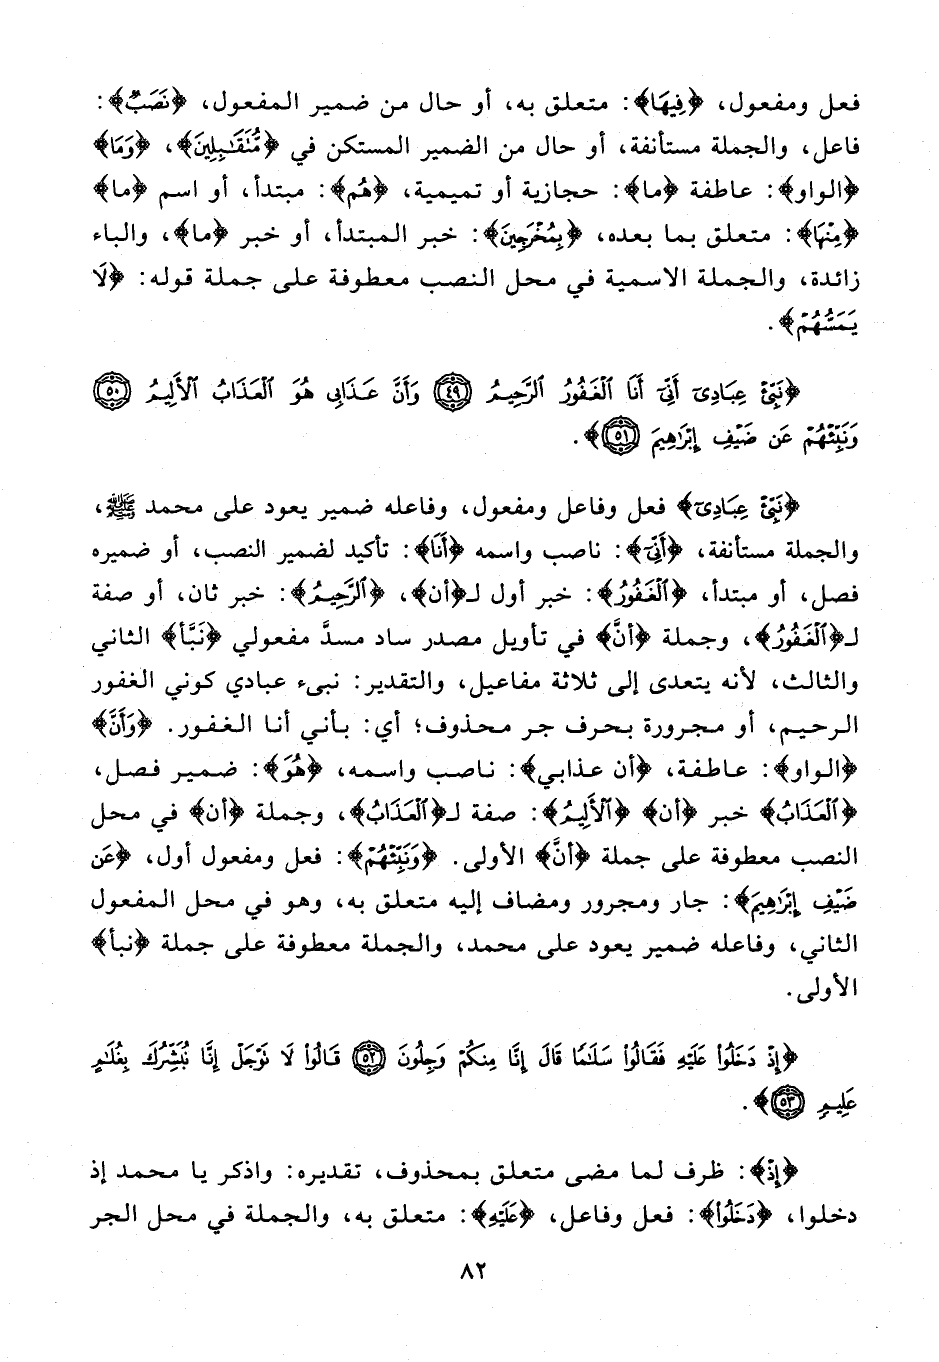 فعل ومفعول، ﴿فِيهَا﴾: متعلق به، أو حال من ضمير المفعول، ﴿نَصَبٌ﴾:
فاعل، والجملة مستأنفة، أو حال من الضمير المستكن في ﴿مُّتَقَٰبِلِينَ﴾، ﴿وَمَا﴾
﴿الواو﴾: عاطفة ﴿ما﴾: حجازية أو تميمية، ﴿هُم﴾: مبتدأ، أو اسم ﴿ما﴾
﴿مِنْهَا﴾: متعلق بما بعده، ﴿بِمُخْرَجِينَ﴾: خبر المبتدأ، أو خبر ﴿ما﴾، والباء
زائدة، والجملة الاسمية في محل النصب معطوفة على جملة قوله: ﴿لَا
يَمَسُّهُمْ﴾.
﴿نَبِّئْ عِبَادِىٓ أَنِّىٓ أَنَا ٱلْغَفُورُ ٱلرَّحِيمُ ٤٩ وَأَنَّ عَذَابِى هُوَ ٱلْعَذَابُ ٱلْأَلِيمُ ٥٠
وَنَبِّئْهُمْ عَن ضَيْفِ إِبْرَٰهِيمَ ٥١﴾.
﴿نَبِّئْ عِبَادِىٓ﴾ فعل وفاعل ومفعول، وفاعله ضمير يعود على محمد ﷺ،
والجملة مستأنفة، ﴿أَنِّىٓ﴾: ناصب واسمه ﴿أَنَا﴾: تأكيد لضمير النصب، أو ضميره
فصل، أو مبتدأ، ﴿ٱلْغَفُورُ﴾: خبر أول لـ﴿أن﴾، ﴿ٱلرَّحِيمُ﴾: خبر ثان، أو صفة
لـ﴿ٱلْغَفُورُ﴾، وجملة ﴿أنَّ﴾ في تأويل مصدر ساد مسدَّ مفعولي ﴿نَبَّأ﴾ الثاني
والثالث، لأنه يتعدى إلى ثلاثة مفاعيل، والتقدير: نبىء عبادي كوني الغفور
الرحيم، أو مجرورة بحرف جر محذوف؛ أي: بأني أنا الغفور. ﴿وَأَنَّ﴾
﴿الواو﴾: عاطفة، ﴿أن عذابي﴾: ناصب واسمه، ﴿هُوَ﴾: ضمير فصل،
﴿ٱلْعَذَابُ﴾ خبر ﴿أن﴾ ﴿ٱلْأَلِيمُ﴾: صفة لـ﴿ٱلْعَذَابُ﴾، وجملة ﴿أن﴾ في محل
النصب معطوفة على جملة ﴿أنَّ﴾ الأولى. ﴿وَنَبِّئْهُمْ﴾: فعل ومفعول أول، ﴿عَن
ضَيْفِ إِبْرَٰهِيمَ﴾: جار ومجرور ومضاف إليه متعلق به، وهو في محل المفعول
الثاني، وفاعله ضمير يعود على محمد، والجملة معطوفة على جملة ﴿نبأ﴾
الأولى.
﴿إِذْ دَخَلُوا۟ عَلَيْهِ فَقَالُوا۟ سَلَٰمًا قَالَ إِنَّا مِنكُمْ وَجِلُونَ ٥٢ قَالُوا۟ لَا نَوْجَلْ إِنَّا نُبَشِّرُكَ بِغُلَٰمٍ
عَلِيمٍ ٥٣﴾.
﴿إِذْ﴾: ظرف لما مضى متعلق بمحذوف، تقديره: واذكر يا محمد إذ
دخلوا، ﴿دَخَلُوا۟﴾: فعل وفاعل، ﴿عَلَيْهِ﴾: متعلق به، والجملة في محل الجر
٨٢